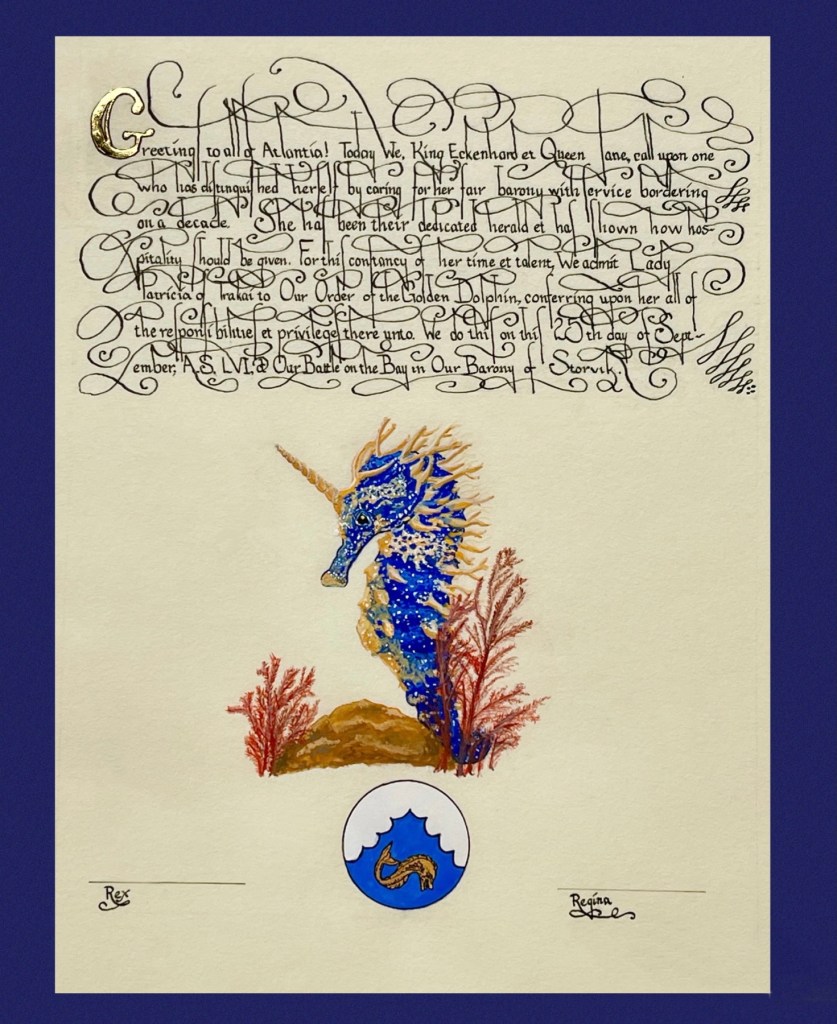 Greeting to all of Atlantia! Today We, King Eckenhard et Queen Jane, call upon one
who has distinguished herself by caring for her fair barony with service bordering
on a decade. She has been their dedicated herald et has shown how hos-
pitality should be given. For this constancy of her time et talent, We admit Lady
Patricia of Trakai to Our Order of the Golden Dolphin, conferring upon her all of
the responsibilities et privileges there unto. We do this on this 25th day of Sept-
ember, A.S. LVI, @ Our Battle on the Bay in Our Barony of Storvik.
Rex
Regina